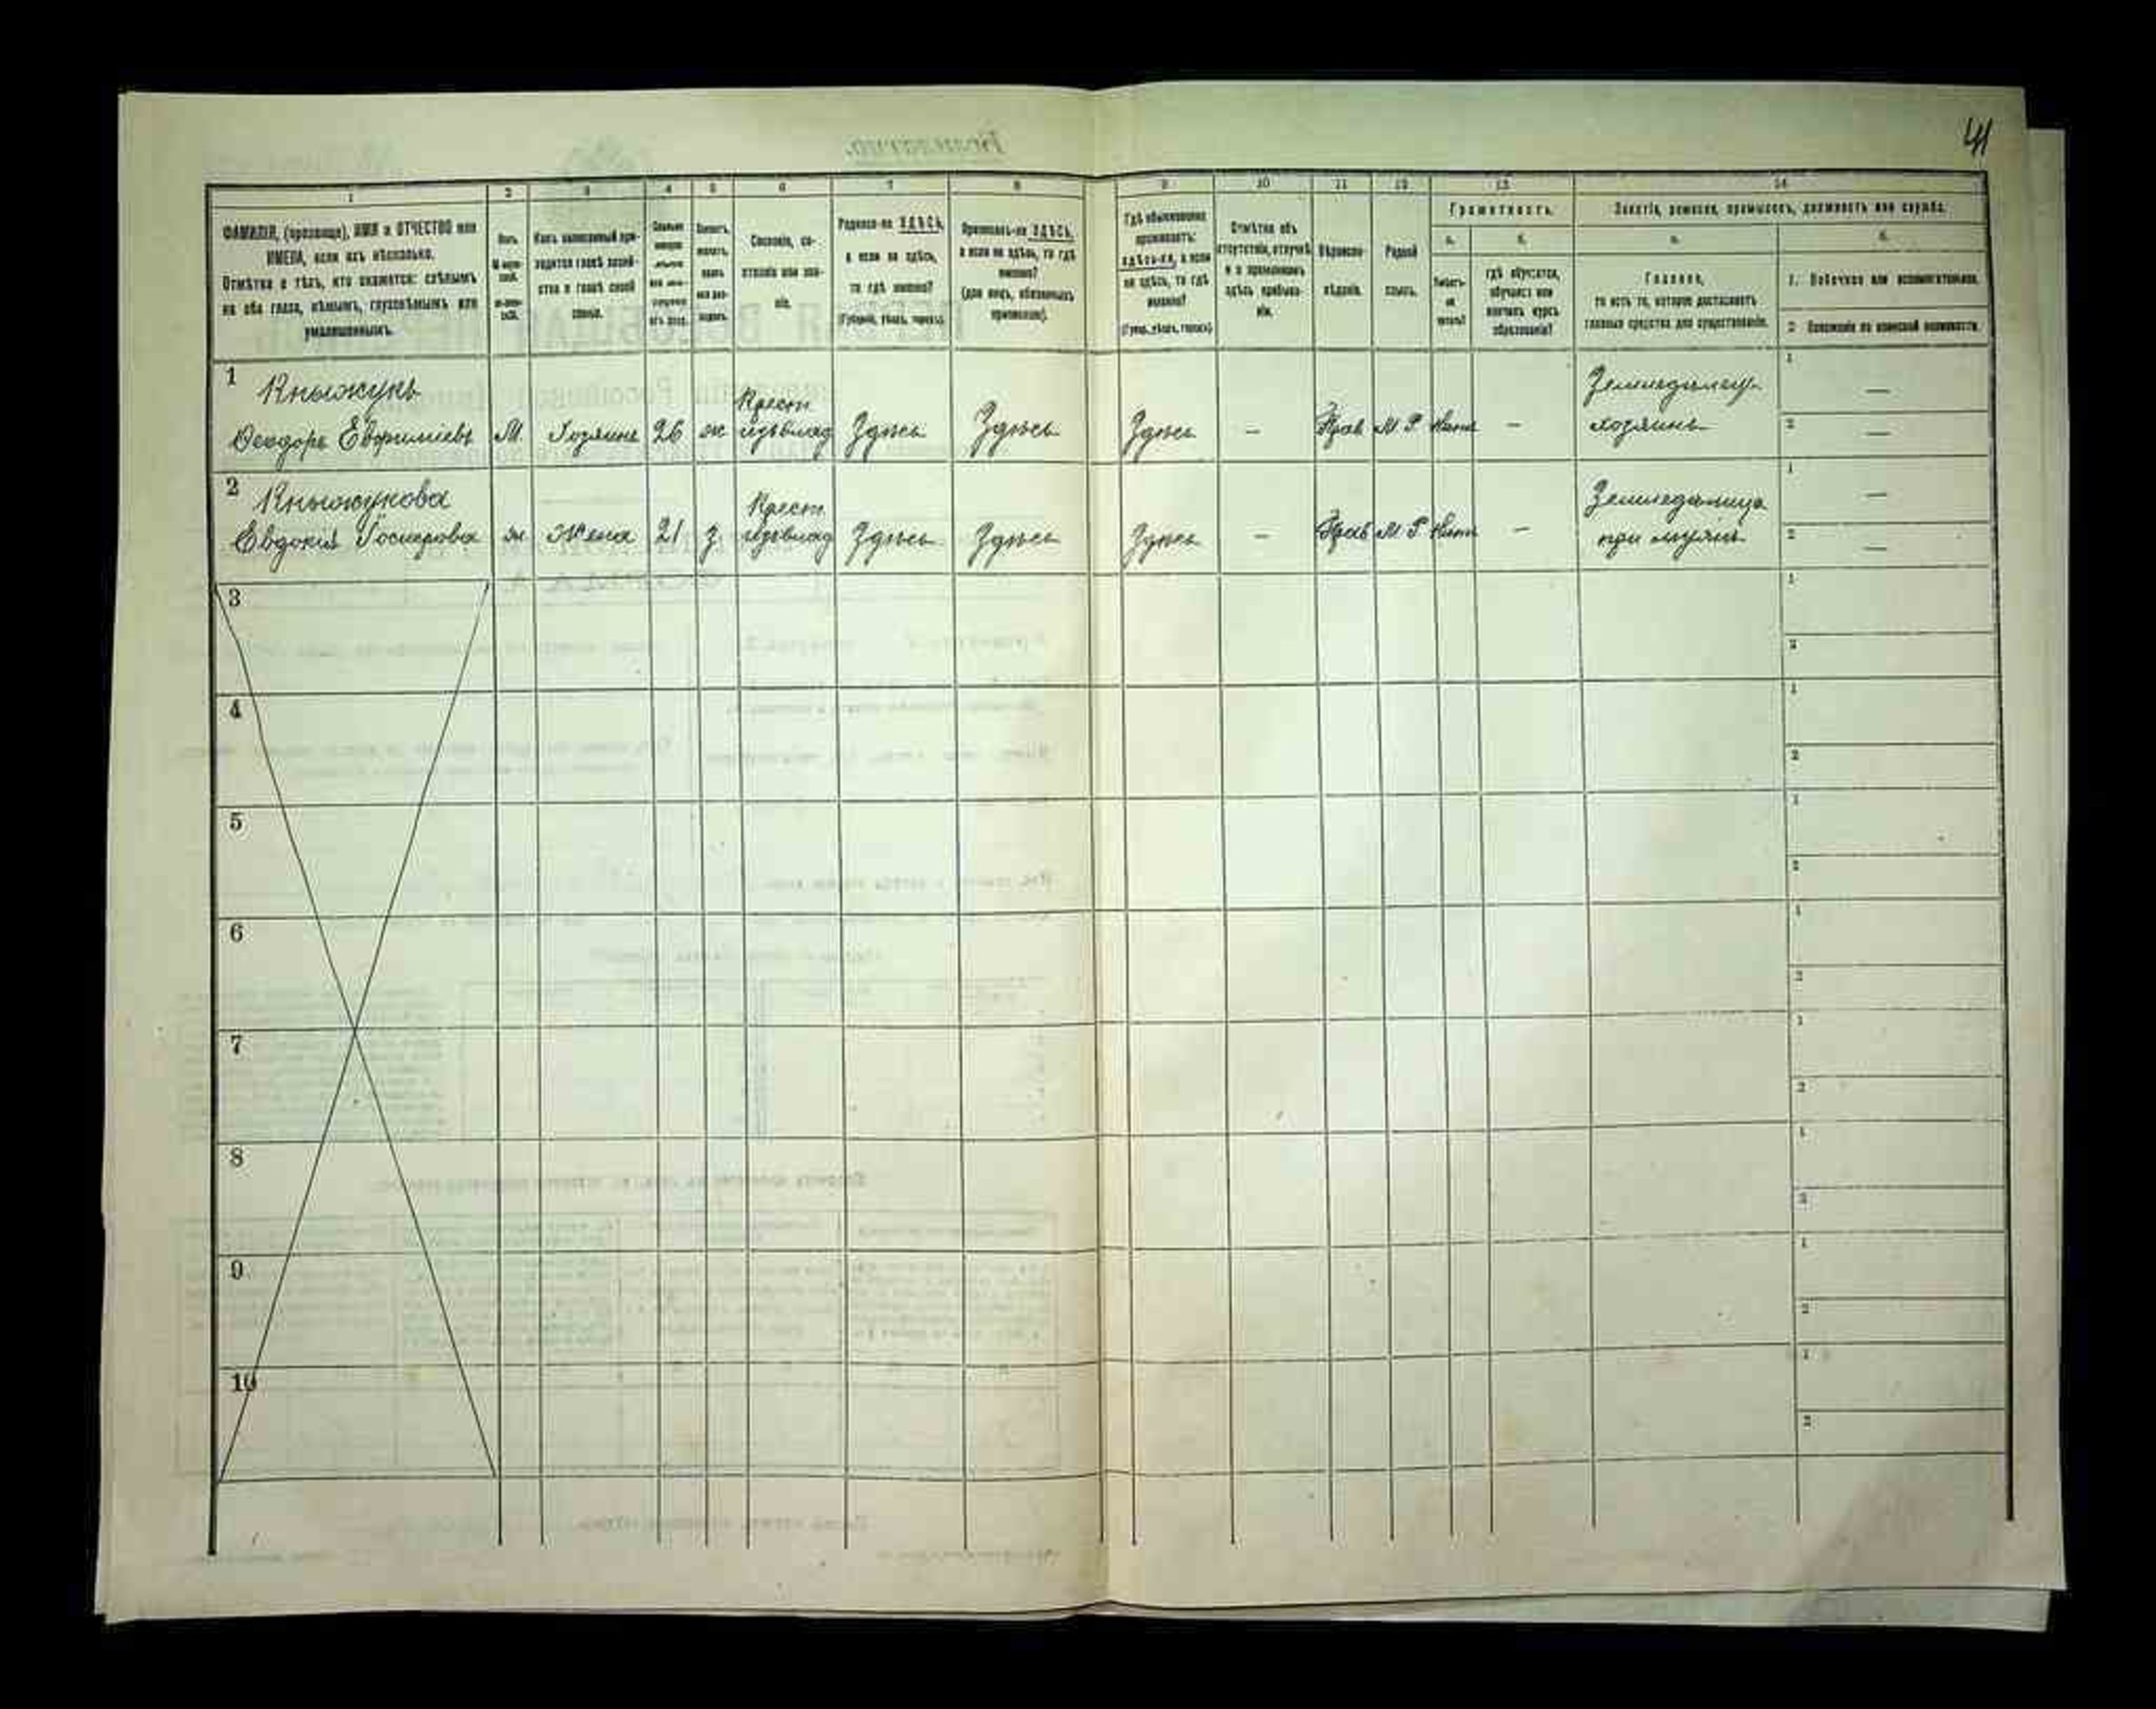 41
1 2 3 4 5 6 7 8 9 10 11 12 13 14
ФАМИЛІЯ, (прозвище), ИМЯ и ОТЧЕСТВО или
ИМЕНА, если ихъ нѣсколько.
Отмѣтка о тѣхъ, кто окажется: слѣпымъ
на оба глаза, нѣмымъ, глухонѣмымъ или
умалишеннымъ.
Какъ записанный при-
ходится главѣ хозяй-
ства и главѣ своей
семьи.
Сословіе, со-
стояніе или зва-
ніе.
Родился-ли ЗДѢСЬ,
а если не здѣсь,
то гдѣ именно?
(Губернія, уѣздъ, городъ).
Приписанъ-ли ЗДѢСЬ,
а если не здѣсь, то гдѣ
именно?
(для лицъ, обязанныхъ
припискою).
Гдѣ обыкновенно
проживаетъ:
здѣсь-ли, а если
не здѣсь, то гдѣ
именно?
(Губер., уѣздъ, городъ).
Отмѣтка объ
отсутствіи, отлучкѣ
и о временномъ
здѣсь пребыва-
ніи.
Вѣроиспо-
вѣданіе.
Родной
языкъ.
Грамотность.
а. б.
Умѣетъ-
ли
читать?
гдѣ обучается,
обучался или
кончилъ курсъ
образованія?
Занятіе, ремесло, промыселъ, должность или служба.
а. б.
Главное,
то есть то, которое доставляетъ
главныя средства для существованія.
1. Побочное или вспомогательное.
2 Положеніе по воинской повинности.
1 Кныжукъ
Ѳеодоръ Евфиміевъ М. Хозяинъ 26 ж Крест. Здѣсь Здѣсь Здѣсь — Прав М. Р —
Земледѣлецъ
хозяинъ
1 —
2 —
2 Кныжукова
Евдокія ж Жена 21 з. Крест. Здѣсь Здѣсь Здѣсь — Прав М. Р —
Земледѣлица
при мужѣ
1 —
2 —
3 1
2
4 1
2
5 1
2
6 1
2
7 1
2
8 1
2
9 1
2
10 1
2